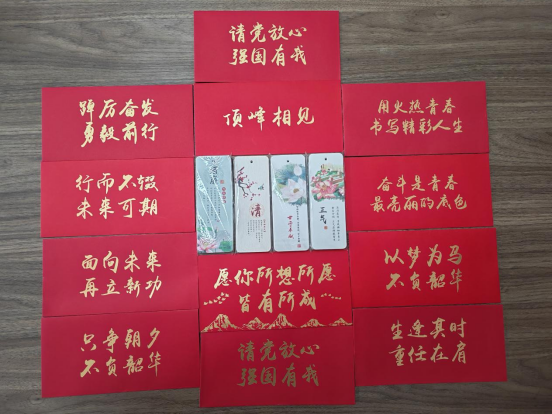 请党放心
强国有我
踔厉奋发
勇毅前行
顶峰相见
用火热青春
书写精彩人生
行而不辍
未来可期
清
正气
奋斗是青春
最亮丽的底色
面向未来
再立新功
愿你所想所愿
皆有所成
以梦为马
不负韶华
只争朝夕
不负韶华
请党放心
强国有我
生逢其时
重任在肩